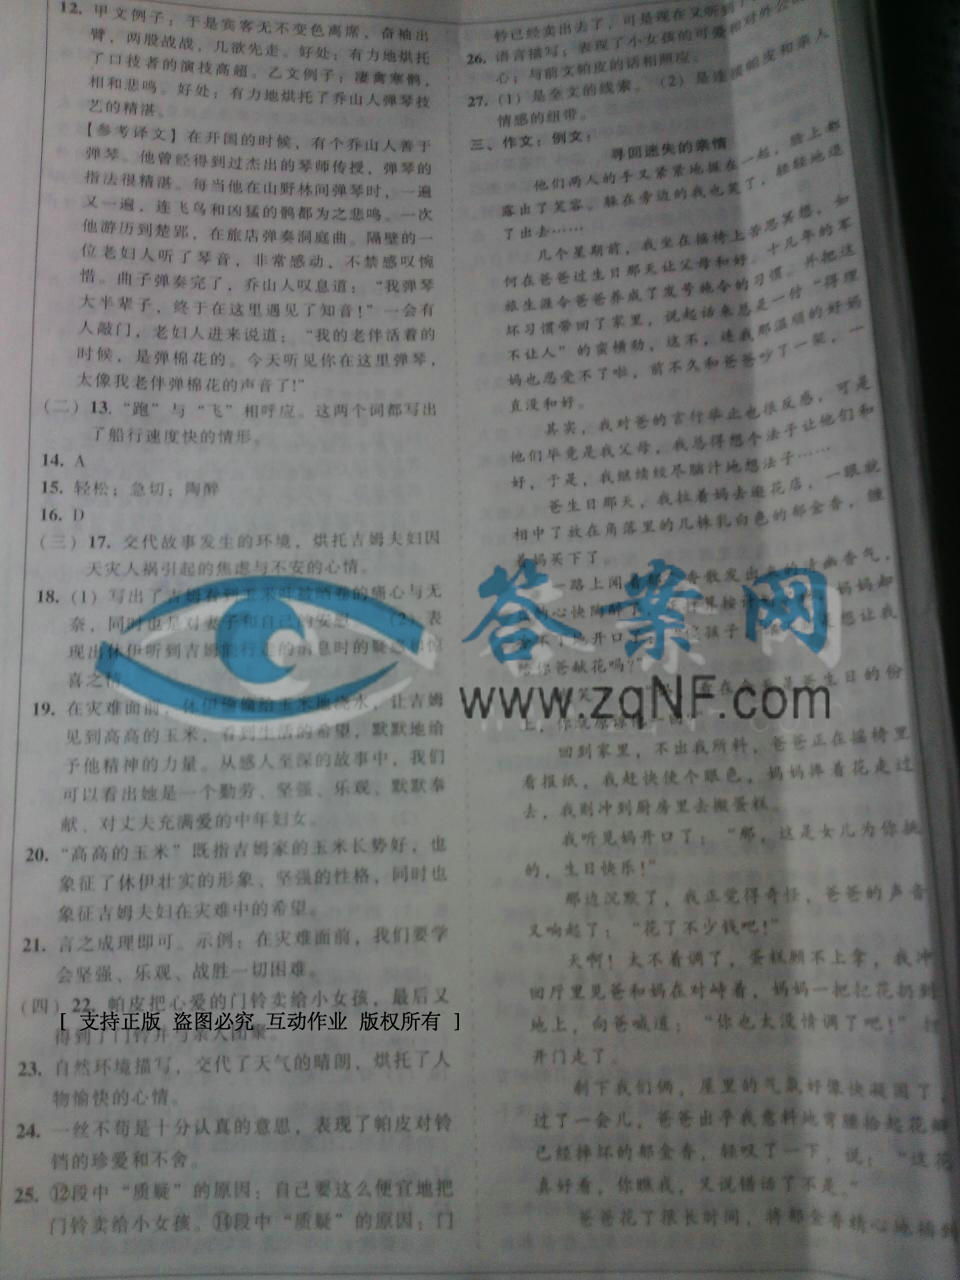 12. 甲文例子：于是宾客无不变色离席，奋袖出
臂，两股战战，几欲先走。好处：有力地烘托
了口技者的演技高超。乙文例子：凄禽寒鹘，
相和悲鸣。好处：有力地烘托了乔山人弹琴技
艺的精湛。
【参考译文】在开国的时候，有个乔山人善于
弹琴。他曾经得到过杰出的琴师传授，弹琴的
指法很精湛。每当他在山野林间弹琴时，一遍
又一遍，连飞鸟和凶猛的鹘都为之悲鸣。一次
他游历到楚郢，在旅店弹奏洞庭曲。隔壁的一
位老妇人听了琴音，非常感动，不禁感叹惋
惜。曲子弹奏完了，乔山人叹息道：“我弹琴
大半辈子，终于在这里遇见了知音！”一会有
人敲门，老妇人进来说道：“我的老伴活着的
时候，是弹棉花的。今天听见你在这里弹琴，
太像我老伴弹棉花的声音了!”
(二) 13. “跑”与“飞”相呼应。这两个词都写出
了船行速度快的情形。
14. A
15. 轻松；急切；陶醉
16. D
(三) 17. 交代故事发生的环境，烘托吉姆夫妇因
天灾人祸引起的焦虑与不安的心情。
18. (1) 写出了吉姆看到玉米 的痛心与无
奈，同时也是对妻子和自己的安慰。(2) 表
现出休伊听到吉姆能行走的消息时的疑 惊
喜之情
19. 在灾难面前，休伊偷偷给玉米地浇水，让吉姆
见到高高的玉米，看到生活的希望，默默地给
予他精神的力量。从感人至深的故事中，我们
可以看出她是一个勤劳、坚强、乐观、默默奉
献、对丈夫充满爱的中年妇女。
20. “高高的玉米”既指吉姆家的玉米长势好，也
象征了休伊壮实的形象、坚强的性格，同时也
象征吉姆夫妇在灾难中的希望。
21. 言之成理即可。示例：在灾难面前，我们要学
会坚强、乐观、战胜一切困难。
(四) 22. 帕皮把心爱的门铃卖给小女孩，最后又
得到了门铃并与亲人团聚。
[ 支持正版 盗图必究 互动作业 版权所有 ]
23. 自然环境描写，交代了天气的晴朗，烘托了人
物愉快的心情。
24. 一丝不苟是十分认真的意思，表现了帕皮对铃
铛的珍爱和不舍。
25. ⑫段中“质疑”的原因：自己要这么便宜地把
门铃卖给小女孩。⑭段中“质疑”的原因：门
铃已经卖出去了，可是现在又听到了
26. 语言描写；表现了小女孩的可爱和对外公
心；与前文帕皮的话相照应。
27. (1) 是全文的线索。(2) 是连接帕皮和亲人
情感的纽带。
三、作文：例文：
寻回迷失的亲情
他们两人的手又紧紧地握在一起，脸上都
露出了笑容。躲在旁边的我也笑了，轻轻地退
了出去……
几个星期前，我坐在摇椅上苦思冥想，如
何在爸爸过生日那天让父母和好。十几年的军
旅生涯令爸爸养成了发号施令的习惯。并把这
坏习惯带回了家里，说起话来总是一付“得理
不让人”的蛮横劲，这不，连我那温顺的好妈
妈也忍受不了啦，前不久和爸爸吵了一架，一
直没和好。
其实，我对爸的言行举止也很反感，可是
他们毕竟是我父母，我总得想个法子让他们和
好，于是，我继续绞尽脑汁地想法子……
爸生日那天，我拉着妈去逛花店，一眼就
相中了放在角落里的几株乳白色的郁金香，缠
着妈买下了
一路上闻着郁金香散发出来的清幽香气，
的心快陶醉了， 打算按计 妈妈却
地开口了：“ 孩子 是想让我
给你爸献花吗?”
笑 爸生日的份
上，你就原谅他一回。”
回到家里，不出我所料，爸爸正在摇椅里
看报纸，我赶快使个眼色，妈妈捧着花走过
去，我则冲到厨房里去搬蛋糕。
我听见妈开口了：“那，这是女儿为你挑
的，生日快乐!”
那边沉默了，我正觉得奇怪，爸爸的声音
又响起了：“花了不少钱吧!”
天啊！太不着调了，蛋糕顾不上拿，我冲
回厅里见爸和妈在对峙着，妈妈一把把花扔到
地上，向爸喊道：“你也太没情调了吧!”打
开门走了。
剩下我们俩，屋里的气氛好像快凝固了，
过了一会儿，爸爸出乎我意料地弯腰拾起花瓣
已经摔坏的郁金香，轻叹了一下，说：“这花
真好看，你瞧我，又说错话了不是。”
爸爸花了很长时间，将郁金香精心地插到
答案网
www.zqNF.com